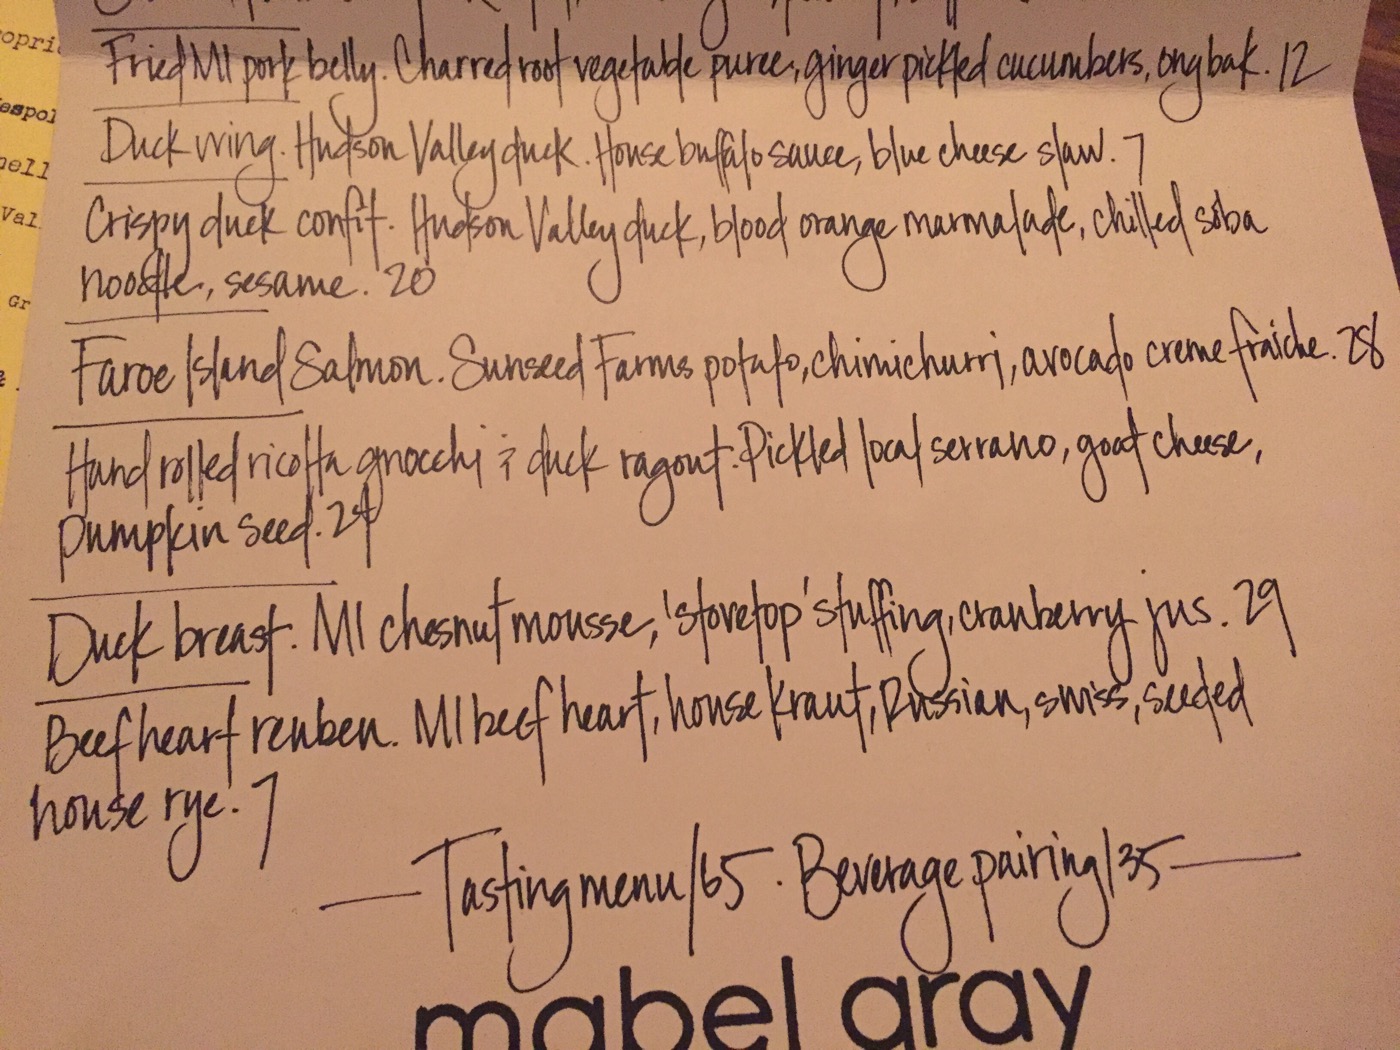 opri
espol
nell
Val.
Gr
Fried MI pork belly. Charred root vegetable puree, ginger pickled cucumbers, ong bak. 12
Duck wing. Hudson Valley duck. House buffalo sauce, blue cheese slaw. 7
Crispy duck confit. Hudson Valley duck, blood orange marmalade, chilled soba
noodle, sesame. 20
Faroe Island Salmon. Sunseed Farms potato, chimichurri, avocado creme fraiche. 28
Hand rolled ricotta gnocchi & duck ragout. Pickled local serrano, goat cheese,
pumpkin seed. 24
Duck breast. MI chesnut mousse, 'stovetop' stuffing, cranberry jus. 29
Beef heart reuben. MI beef heart, house kraut, Russian, swiss, seeded
house rye. 7
— Tasting menu/65. Beverage pairing/35 —
mabel gray